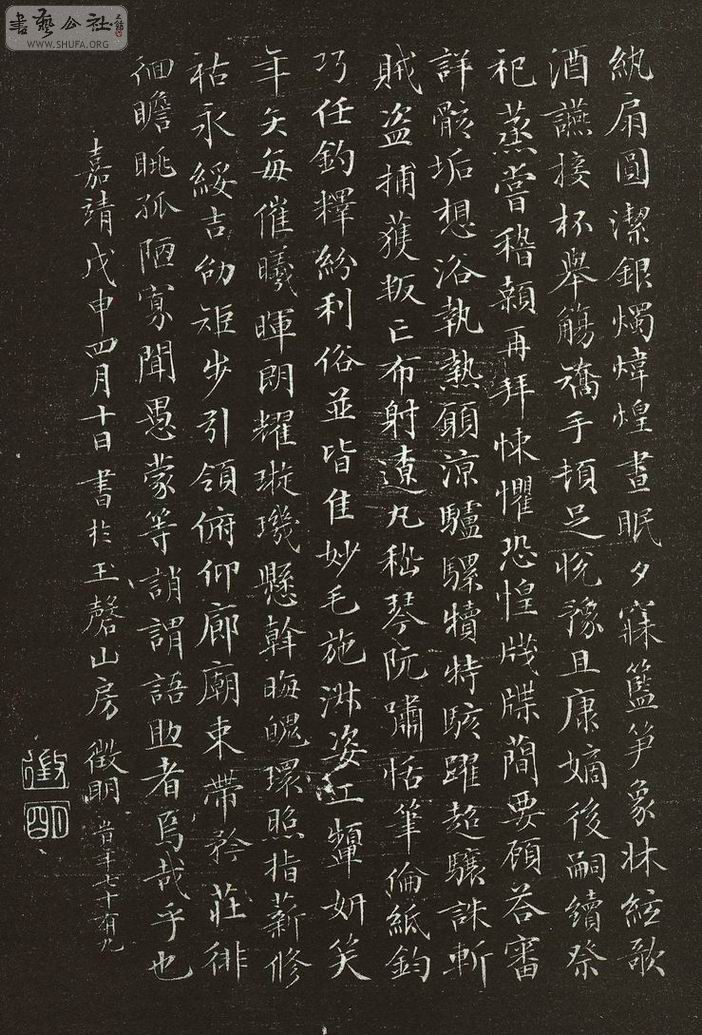 書藝公社
WWW.SHUFA.ORG
紈扇圓潔銀燭煒煌晝眠夕寐籃笋象牀絃歌
酒讌接杯舉觴矯手頓足悅豫且康嫡後嗣續祭
祀蒸嘗稽顙再拜悚懼恐惶牋牒簡要顧荅審
詳骸垢想浴執熱願涼驢騾犢特駭躍超驤誅斬
賊盜捕獲叛亡布射遼丸嵇琴阮嘯恬筆倫紙鈞
巧任釣釋紛利俗並皆佳妙毛施淑姿工顰妍笑
年矢每催曦暉朗耀璇璣懸斡晦魄環照指薪修
祜永綏吉劭矩步引領俯仰廊廟束帶矜莊徘
徊瞻眺孤陋寡聞愚蒙等誚謂語助者焉哉乎也
嘉靖戊申四月十日書於玉磬山房徵明時年七十有九
徵明